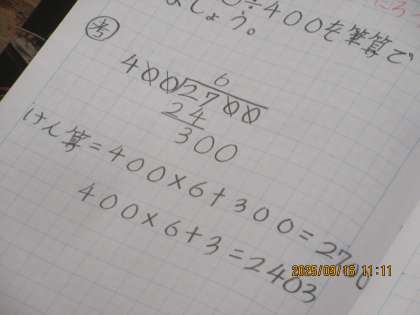 ÷400を筆算で
ましょう。
考
6
400)2700
24
300
けん算=400×6+300=2700
400×6+3=2403
2025/09/15 11:11